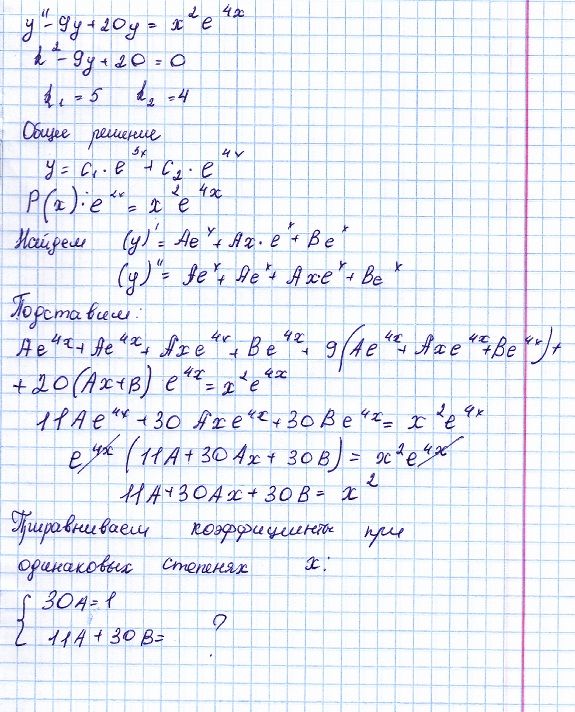 y" - 9y + 20y = x² e^4x
k² - 9y + 20 = 0
k₁ = 5 k₂ = 4
Общее решение
y = C₁ · e^5x + C₂ · e^4x
P(x) · e^2x = x² e^4x
Найдем (y)' = Ae^x + Ax · e^x + Be^x
(y)" = Ae^x + Ae^x + Axe^x + Be^x
Подставим:
Ae^4x + Ae^4x + Axe^4x + Be^4x + 9(Ae^4x + Axe^4x + Be^4x) +
+ 20(Ax + B) e^4x = x² e^4x
11Ae^4x + 30Axe^4x + 30Be^4x = x² e^4x
e^4x (11A + 30Ax + 30B) = x² e^4x
11A + 30Ax + 30B = x²
Приравниваем коэффициенты при
одинаковых степенях x:
{ 30A = 1
11A + 30B = ?